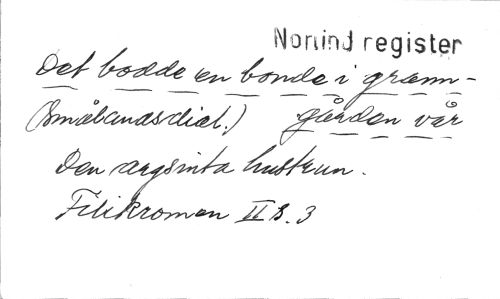 Norlind register
Det bodde en bonde i grann-
(Smålandsdial.) gården vår
Den argsinta hustrun.
Filikromen II s. 3